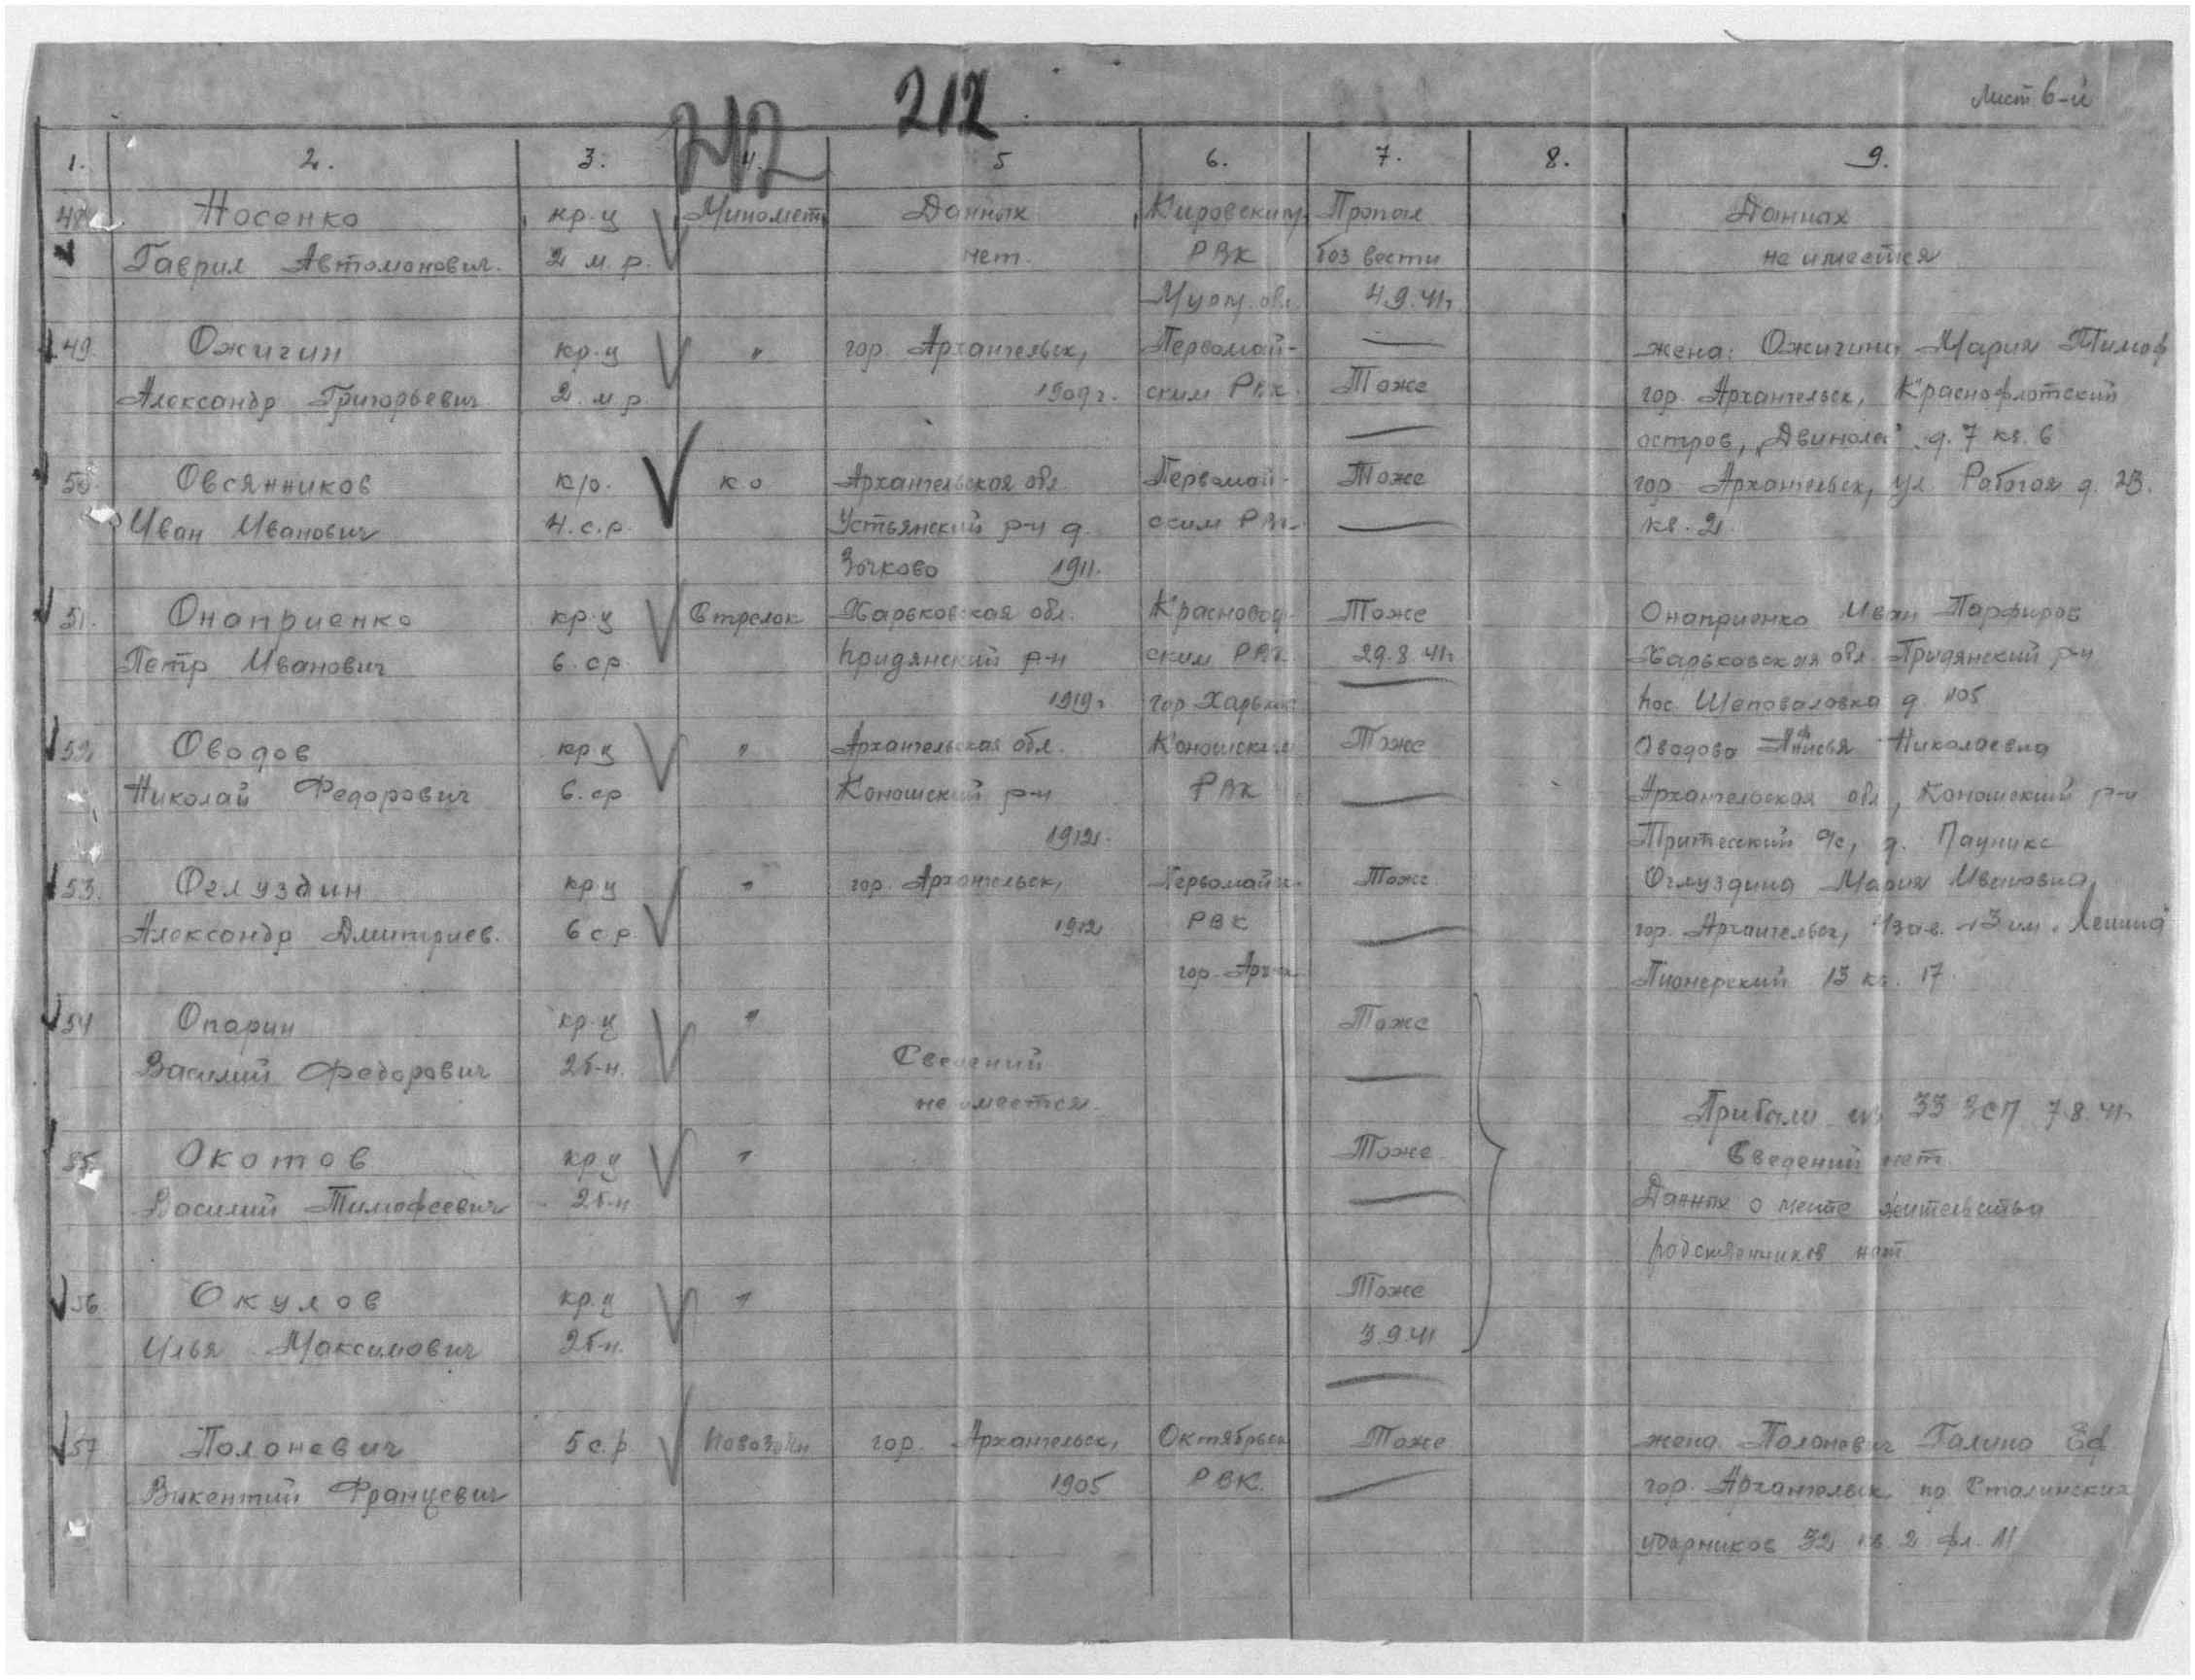 Лист 6-й
212
212
1. 2. 3. 4. 5 6. 7. 8. 9.
48 Носенко кр-ц Миномет. Данных Кировским Пропал Данных
Гаврил Автомонович. 2 м.р. нет. РВК без вести не имеется
Мурм. обл. 4.9.41г.
49. Ожигин кр-ц " гор. Архангельск, Первомай- — жена: Ожигина Мария Тимоф
Александр Григорьевич 2. м.р. 1909г. ским РВК. Тоже гор. Архангельск, Краснофлотский
остров, „Двинолес" д. 7 кв. 6
50. Овсянников к/о. к.о Архангельская обл. Первомай- Тоже гор. Архангельск, ул. Рабочая д. 23.
Иван Иванович 4. с.р. Устьянский р-н д. ским РВК — кв. 2.
Зыково 1911.
51. Онаприенко кр-ц Стрелок Харьковская обл. Красновод- Тоже Онаприенко Иван Парфиров
Петр Иванович 6. ср. ским РВК 29.8.41г Харьковская обл. р-н
1919г. гор Харьков пос. Шеповаловка д 105
52. Оводов кр-ц " Архангельская обл. Коношским Тоже Оводова Николаевна
Николай Федорович 6. ср Коношский р-н РВК — Архангельская обл, Коношский р-н
1912г. с/с, д.
53. Оглуздин кр-ц " гор. Архангельск, Первомайск. Тоже Оглуздина Мария Ивановна,
Александр Дмитриев. 6 с р 1912 РВК — гор. Архангельск, им. Ленина
гор. Арханг Пионерский 13 кв. 17.
54 Опарин кр-ц " Тоже
Василий Федорович 2б-н. Сведений —
не имеется. Прибыли из 33 ЗСП 7.8.41г.
55. Окотов кр-ц " Тоже Сведений нет.
Василий Тимофеевич 2б-н — Данных о месте жительства
родственников нет
56. Окулов кр.ц " Тоже
Илья Максимович 2б-н. 3.9.41
57 Полоневич 5 с.р. гор. Архангельск, Октябрьск Тоже жена Полоневич Галина Еф
Викентий Францевич 1905 РВК. — гор. Архангельск пр Сталинских
ударников 32 кв. 2 фл. 11